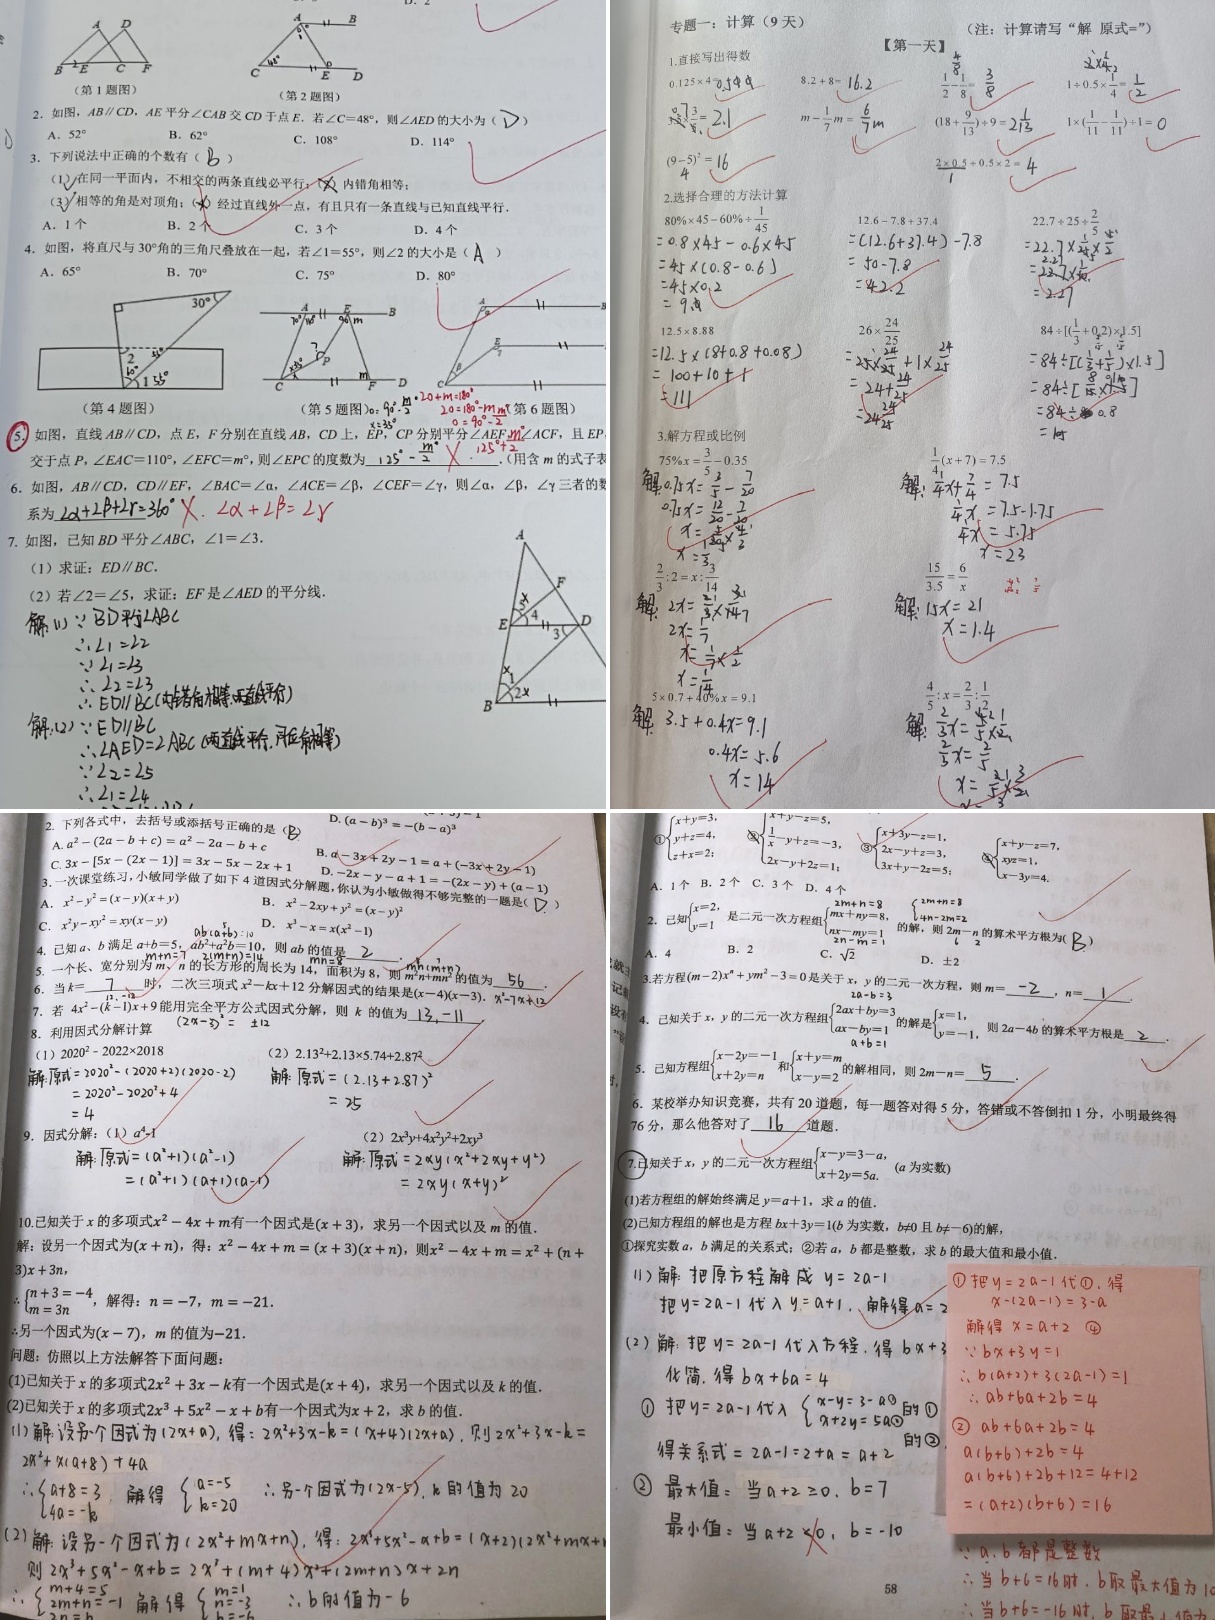 A D
B 2 E C F
(第 1 题图)
A B
C 48° E D
(第 2 题图)
2. 如图, AB∥CD, AE 平分∠CAB 交 CD 于点 E. 若∠C=48°, 则∠AED 的大小为 ( D )
A. 52° B. 62° C. 108° D. 114°
3. 下列说法中正确的个数有 ( B )
(1) 在同一平面内, 不相交的两条直线必平行; (2) 内错角相等;
(3) 相等的角是对顶角; (4) 经过直线外一点, 有且只有一条直线与已知直线平行.
A. 1 个 B. 2 个 C. 3 个 D. 4 个
4. 如图, 将直尺与 30°角的三角尺叠放在一起, 若∠1=55°, 则∠2 的大小是 ( A )
A. 65° B. 70° C. 75° D. 80°
(第 4 题图) (第 5 题图) (第 6 题图)
5. 如图, 直线 AB∥CD, 点 E, F 分别在直线 AB, CD 上, EP, CP 分别平分∠AEF, ∠ACF, 且 EP
交于点 P, ∠EAC=110°, ∠EFC=m°, 则∠EPC 的度数为 125° - m/2 . (用含 m 的式子表
6. 如图, AB∥CD, CD∥EF, ∠BAC=∠α, ∠ACE=∠β, ∠CEF=∠γ, 则∠α, ∠β, ∠γ 三者的数
系为 ∠α+∠β+∠γ=360° ∠α+∠β=∠γ
7. 如图, 已知 BD 平分∠ABC, ∠1=∠3.
(1) 求证: ED∥BC.
(2) 若∠2=∠5, 求证: EF 是∠AED 的平分线.
解:(1) ∵ BD平分∠ABC
∴∠1=∠2
∵∠1=∠3
∴∠2=∠3
∴ED∥BC(内错角相等,两直线平行)
解:(2) ∵ED∥BC
∴∠AED=∠ABC(两直线平行,同位角相等)
∵∠2=∠5
∴∠1=∠4
专题一: 计算 (9 天) (注: 计算请写 “解 原式=”)
【第一天】
1.直接写出得数
0.125×4= 8.2+8= 16.2 1/2-1/8= 3/8 1÷0.5×1/4= 1/2
= 2.1 m-1/7m= 6/7m (18+9/13)÷9= 2 1/13 1×(1/11-1/11)÷1= 0
(9-5)²= 16 2×0.5÷0.5×2= 4
2.选择合理的方法计算
80%×45-60%÷1/45 12.6-7.8+37.4 22.7÷25÷2/5
=0.8×45-0.6×45 =(12.6+37.4)-7.8 =22.7×1/25×5/2
=45×(0.8-0.6) =50-7.8 =22.7×1/10
=45×0.2 =42.2 =2.27
= 9
12.5×8.88 26×24/25 84÷[(1/3+0.2)×1.5]
=12.5×(8+0.8+0.08) =25×24/25+1×24/25 =84÷[(1/3+1/5)×1.5]
=100+10+1 =24+24/25 =84÷[8/15×1.5]
=111 =24 24/25 =84÷0.8
=105
3.解方程或比例
75%x=3/5-0.35 1/4(x+7)=7.5
解:0.75x=3/5-7/20 解:1/4x+7/4=7.5
0.75x=12/20-7/20 1/4x=7.5-1.75
x=5/20×4/3 1/4x=5.75
x=1/3 x=23
2/3:2=x:3/14 15/3.5=6/x
解:2x=2/3×3/14 解:15x=21
2x=1/7 x=1.4
x=1/7×1/2
x=1/14
5×0.7+40%x=9.1 4/5:x=2/3:1/2
解:3.5+0.4x=9.1 解:2/3x=4/5×1/2
0.4x=5.6 2/3x=2/5
x=14 x=2/5×3/2
D. (a-b)³=-(b-a)³
2. 下列各式中, 去括号或添括号正确的是 (B)
A. a²-(2a-b+c)=a²-2a-b+c B. a-3x+2y-1=a+(-3x+2y-1)
C. 3x-[5x-(2x-1)]=3x-5x-2x+1 D. -2x-y-a+1=-(2x-y)+(a-1)
3.一次课堂练习, 小敏同学做了如下 4 道因式分解题, 你认为小敏做得不够完整的一题是( D )
A. x²-y²=(x-y)(x+y) B. x²-2xy+y²=(x-y)²
C. x²y-xy²=xy(x-y) D. x³-x=x(x²-1)
ab(a+b)=10
4. 已知 a、b 满足 a+b=5, ab²+a²b=10, 则 ab 的值是 2 .
m+n=7 2(m+n)=14 mn=8 mn(m+n)
5. 一个长、宽分别为 m、n 的长方形的周长为 14, 面积为 8, 则 m²n+mn² 的值为 56 .
6. 当 k= 7 时, 二次三项式 x²-kx+12 分解因式的结果是(x-4)(x-3). x²-7x+12
12,-12
7. 若 4x²-(k-1)x+9 能用完全平方公式因式分解, 则 k 的值为 13,-11 .
(2x-3)²= ±12
8. 利用因式分解计算
(1) 2020²-2022×2018 (2) 2.13²+2.13×5.74+2.87²
解:原式=2020²-(2020+2)(2020-2) 解:原式=(2.13+2.87)²
=2020²-2020²+4 =25
=4
9. 因式分解: (1) a⁴-1 (2) 2x³y+4x²y²+2xy³
解:原式=(a²+1)(a²-1) 解:原式=2xy(x²+2xy+y²)
=(a²+1)(a+1)(a-1) =2xy(x+y)²
10.已知关于 x 的多项式x²-4x+m有一个因式是(x+3), 求另一个因式以及 m 的值.
解: 设另一个因式为(x+n), 得: x²-4x+m=(x+3)(x+n), 则x²-4x+m=x²+(n+
3)x+3n,
∴{n+3=-4 m=3n, 解得: n=-7, m=-21.
∴另一个因式为(x-7), m 的值为-21.
问题: 仿照以上方法解答下面问题:
(1)已知关于 x 的多项式2x²+3x-k有一个因式是(x+4), 求另一个因式以及 k 的值.
(2)已知关于 x 的多项式2x³+5x²-x+b有一个因式为x+2, 求 b 的值.
(1)解:设另一个因式为(2x+a), 得: 2x²+3x-k=(x+4)(2x+a), 则2x²+3x-k=
2x²+x(a+8)+4a
∴{a+8=3 4a=-k 解得 {a=-5 k=20 ∴另一个因式为(2x-5), k 的值为 20
(2)解:设另一个因式为(2x²+mx+n), 得: 2x³+5x²-x+b=(x+2)(2x²+mx+
则 2x³+5x²-x+b=2x³+(m+4)x²+(2m+n)x+2n
∴{m+4=5 2m+n=-1 2n=b 解得 {m=1 n=-3 b=-6 ∴b的值为-6
①{x+y=3, y+z=4, z+x=2; ②{x+y-z=5, 1/x-y+z=-3, 2x-y+2z=1; ③{x+3y-z=1, 2x-y+z=3, 3x+y-2z=5; ④{x+y-z=7, xyz=1, x-3y=4.
A. 1 个 B. 2 个 C. 3 个 D. 4 个
2m+n=8 {2m+n=8 4n-2m=2
2. 已知{x=2, y=1 是二元一次方程组{mx+ny=8, nx-my=1 的解, 则 2m-n 的算术平方根为( B )
2n-m=1 6 2
A. 4 B. 2 C. √2 D. ±2
3.若方程(m-2)xⁿ+ym²-3=0是关于 x, y 的二元一次方程, 则 m= -2 , n= 1 .
2a-b=3
4. 已知关于 x, y 的二元一次方程组{2ax+by=3 ax-by=1 的解是{x=1, y=-1, 则 2a-4b 的算术平方根是 2 .
a+b=1
5. 已知方程组{x-2y=-1 x+2y=n 和{x+y=m x-y=2 的解相同, 则 2m-n= 5 .
6. 某校举办知识竞赛, 共有 20 道题, 每一题答对得 5 分, 答错或不答倒扣 1 分, 小明最终得
76 分, 那么他答对了 16 道题.
7.已知关于 x, y 的二元一次方程组{x-y=3-a, x+2y=5a. (a 为实数)
(1)若方程组的解始终满足 y=a+1, 求 a 的值.
(2)已知方程组的解也是方程 bx+3y=1(b 为实数, b≠0 且 b≠-6)的解,
①探究实数 a, b 满足的关系式; ②若 a, b 都是整数, 求 b 的最大值和最小值.
(1)解:把原方程解成 y=2a-1
把y=2a-1代入 y=a+1, 解得a=2
(2)解:把 y=2a-1代入方程, 得 bx+3
化简, 得 bx+6a=4
①把y=2a-1代入 {x-y=3-a① x+2y=5a② 的①
的②
得关系式=2a-1=2+a=a+2
②最大值: 当a+2≥0, b=7
最小值: 当a+2<0, b=-10
①把y=2a-1代①, 得
x-(2a-1)=3-a
解得 x=a+2 ④
∵bx+3y=1
∴b(a+2)+3(2a-1)=1
∴ab+6a+2b=4
②ab+6a+2b=4
a(b+6)+2b=4
a(b+6)+2b+12=4+12
=(a+2)(b+6)=16
∵a、b都是整数
∴当b+6=16时, b取最大值为10
∴当b+6=-16时, b取最小值为
58